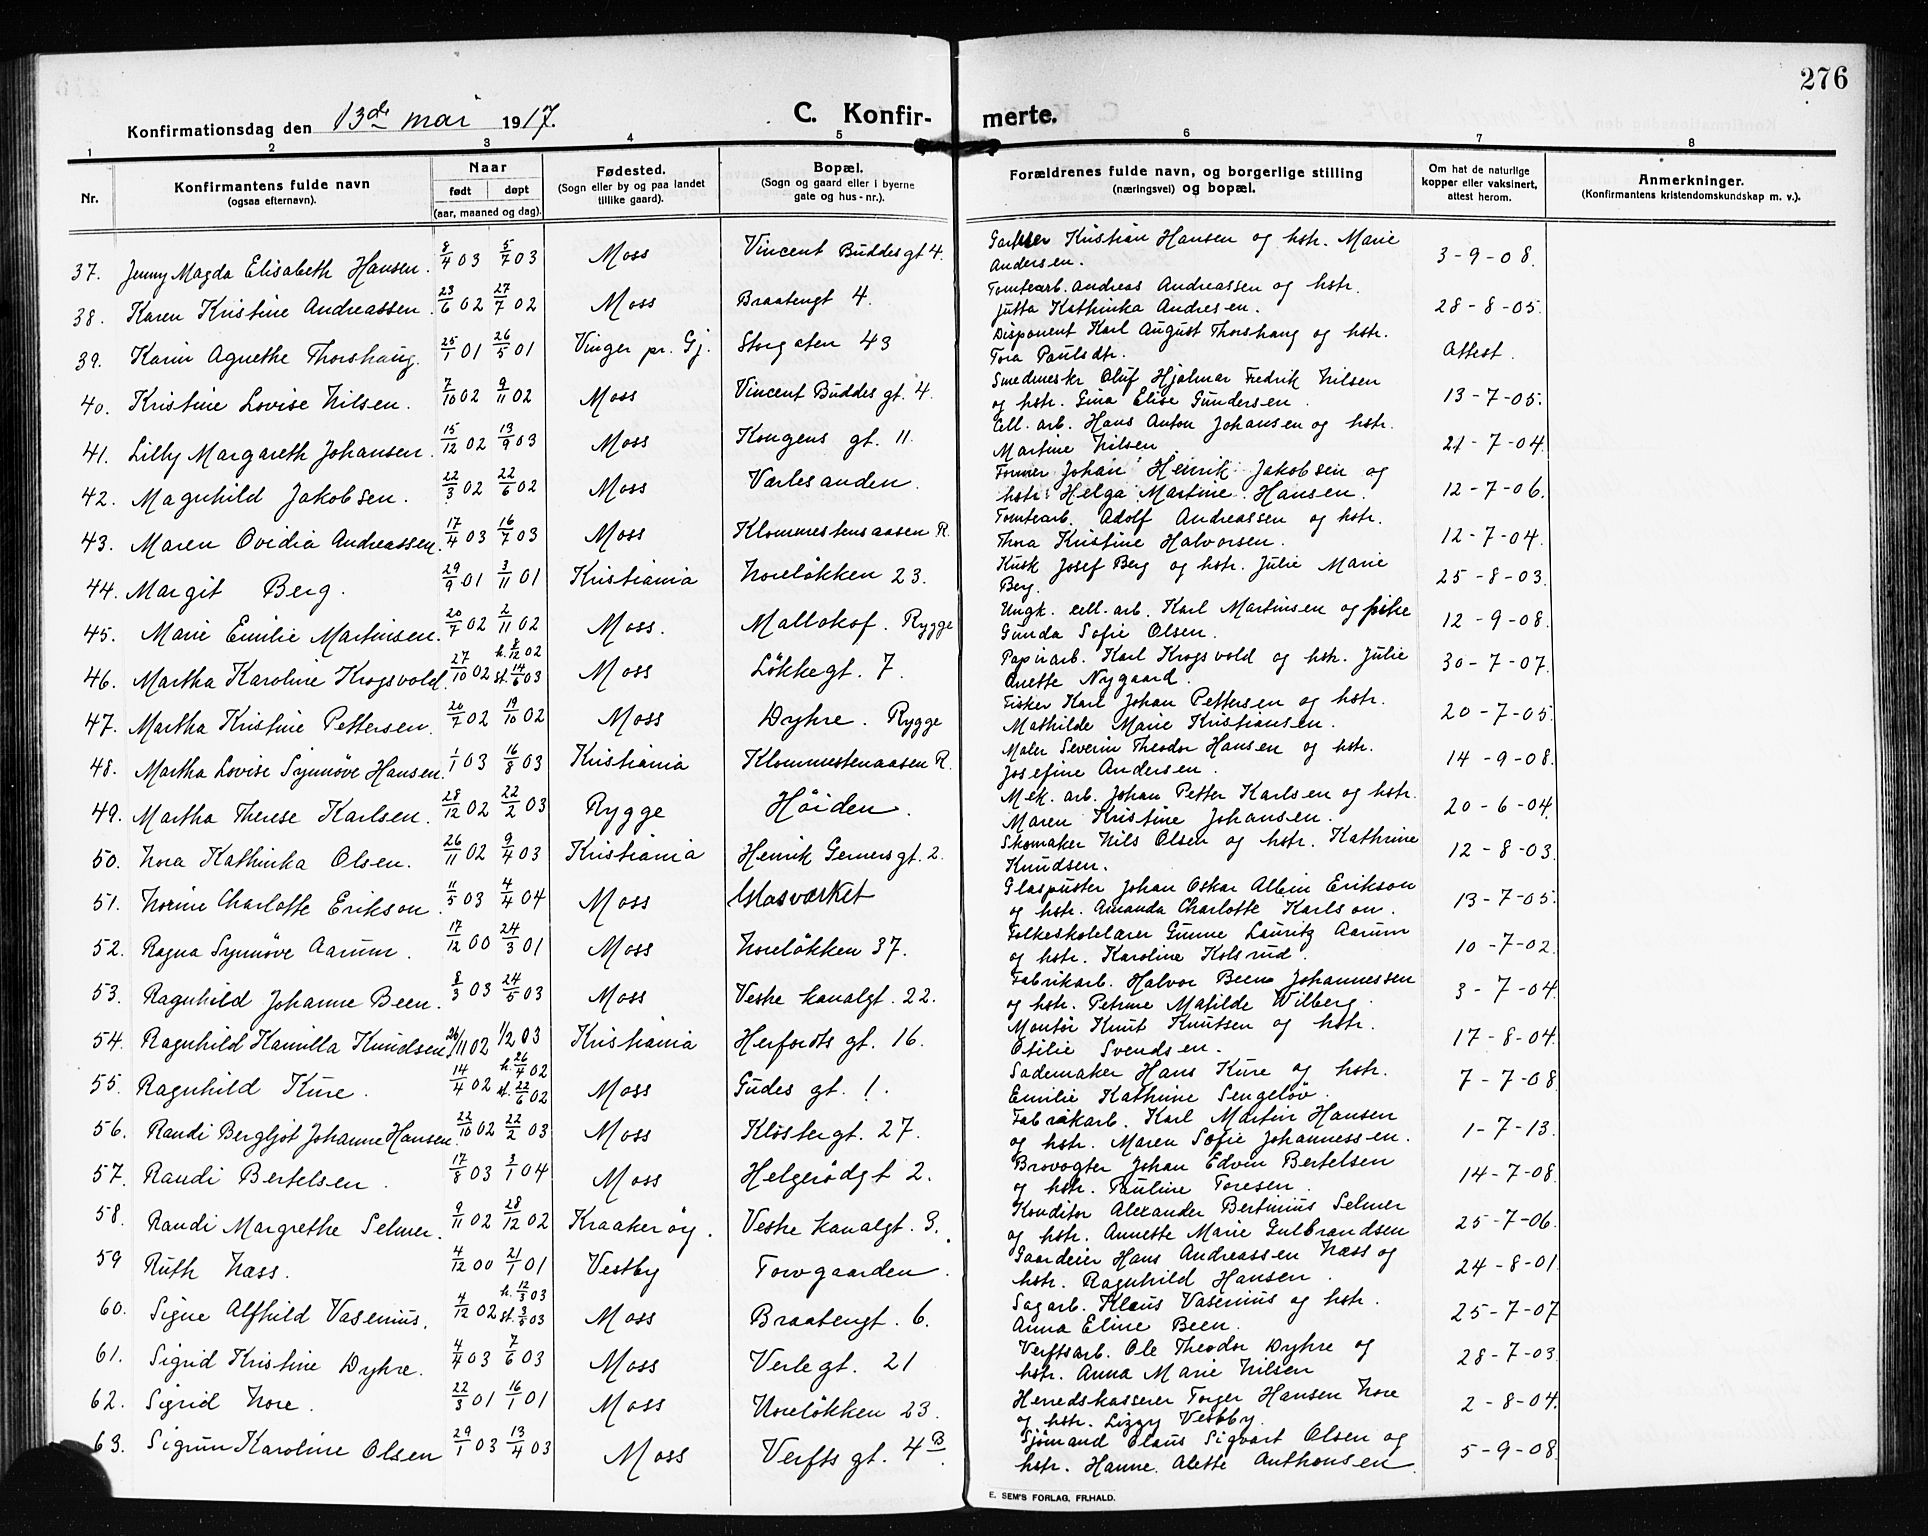 276
Konfirmationsdag den 13de mai 1917.
C. Konfirmerte.
1 2 3 4 5 6 7 8
Nr.
Konfirmantens fulde navn
(ogsaa efternavn).
Naar
født døpt
(aar, maaned og dag).
Fødested.
(Sogn eller by og paa landet
tillike gaard).
Bopæl.
(Sogn og gaard eller i byerne
gate og hus-nr.).
Forældrenes fulde navn, og borgerlige stilling
(næringsvei) og bopæl.
Om hat de naturlige
kopper eller vaksinert,
attest herom.
Anmerkninger.
(Konfirmantens kristendomskundskap m. v.).
37. Jenny Magda Elisabeth Hansen. 8/4 03 5/7 03 Moss Vincent Buddesgt 4. Kristian Hansen og hstr. Marie
Andersen. 3-9-08.
38. Karen Kristine Andreassen. 23/6 02 27/7 02 Moss Braatengt 4. Tomtearb. Andreas Andreassen og hstr.
Jutta Kathinka Andresen. 28-8-05.
39. Karin Agnethe Thorshaug. 25/1 01 26/5 01 Vinger pr. Gj. Storgaten 43 Disponent Karl August Thorshaug og hstr.
Tora Paulsdtr. Attest.
40. Kristine Lovise Nilsen. 7/10 02 9/11 02 Moss Vincent Buddes gt. 4. Smedmestr Oluf Hjalmar Fredrik Nilsen
og hstr. Gina Elise Gundersen. 13-7-05.
41. Lilly Margareth Johansen. 15/12 02 13/9 03 Moss Kongens gt. 11. Cell. arb. Hans Anton Johansen og hstr.
Martine Nilsen. 21-7-04.
42. Magnhild Jakobsen. 22/3 02 22/6 02 Moss Værlesanden. Former Johan Henrik Jakobsen og
hstr. Helga Martine Hansen. 12-7-06.
43. Maren Ovidia Andreassen. 17/4 03 16/7 03 Moss Klommestensaasen R. Tomtearb. Adolf Andreassen og hstr.
Thora Kristine Halvorsen. 12-7-04.
44. Margit Berg. 29/9 01 3/11 01 Kristiania Noreløkken 23. Kusk Josef Berg og hstr. Julie Marie
Berg. 25-8-03.
45. Marie Emilie Martinsen. 20/7 02 2/11 02 Moss. Mallakof. Rygge Ungk. cell. arb. Karl Martinsen og pike
Gunda Sofie Olsen. 12-9-08.
46. Martha Karoline Krogsvold. 27/10 02 h. 8/12 02 st. 14/6 03 Moss Løkkegt. 7. Papirarb. Karl Krogsvold og hstr. Julie
Anette Nygaard. 30-7-07.
47. Martha Kristine Pettersen. 20/7 02 19/10 02 Moss Dyhre. Rygge Fisker Karl Johan Pettersen og hstr.
Mathilde Marie Kristiansen. 20-7-05.
48. Martha Lovise Synnøve Hansen. 1/1 03 16/8 03 Kristiania Klommestenaasen R. Maler Severin Theodor Hansen og hstr.
Josefine Andersen. 14-9-08.
49. Martha Therese Karlsen. 28/12 02 22/2 03 Rygge Høiden. Mek. arb. Johan Petter Karlsen og hstr.
Maren Kristine Johansen. 20-6-04.
50. Nora Kathinka Olsen. 26/11 02 9/4 03 Kristiania Henrik Gerners gt. 2. Skomaker Nils Olsen og hstr. Kathrine
Knudsen. 12-8-03.
51. Norine Charlotte Erikson. 11/5 03 4/4 04 Moss Glasværket Glaspuster Johan Oskar Albin Erikson
og hstr. Amanda Charlotte Karlson. 13-7-05.
52. Ragna Synnøve Aarum. 17/12 00 24/3 01 Moss Noreløkken 37. Folkeskolelærer Gunne Lauritz Aarum
og hstr. Karoline Kolsrud. 10-7-02.
53. Ragnhild Johanne Been. 8/3 03 24/5 03 Moss Vestre kanalgt. 22. Fabrikarb. Halvor Been Johannessen
og hstr. Petrine Matilde Wilberg. 3-7-04.
54. Ragnhild Kamilla Knudsen. 26/11 02 1/2 03 Kristiania Herfordts gt. 16. Montør Knut Knutsen og hstr.
Otilie Svendsen. 17-8-04.
55. Ragnhild Kure. 14/4 02 h. 26/4 02 st. 22/6 02 Moss Gudes gt. 1. Sademaker Hans Kure og hstr.
Emilie Kathrine Sengeløv. 7-7-08.
56. Randi Bergljot Johanne Hansen. 22/10 02 22/2 03 Moss Klostergt. 27. Fabrikarb. Karl Martin Hansen
og hstr. Maren Sofie Johannessen. 1-7-13.
57. Randi Bertelsen. 17/8 03 3/1 04 Moss Helgerødgt 2. Brovogter Johan Edvin Bertelsen
og hstr. Pauline Toresen. 14-7-08.
58. Randi Margrethe Selmer. 9/11 02 28/12 02 Kraakerøy. Vestre kanalgt. 3. Konditor Alexander Bertinius Selmer
og hstr. Annette Marie Gulbrandsen 25-7-06.
59 Ruth Næss. 4/12 00 21/1 01 Vestby Torvgaarden. Gaardeier Hans Andreassen Næss og
hstr. Ragnhild Hansen. 24-8-01.
60. Signe Alfhild Vasenius. 4/12 02 h. 12/3 03 st. 3/5 03 Moss Braatengt. 6. Sagarb. Klaus Vasenius og hstr.
Anna Eline Been. 25-7-07
61. Sigrid Kristine Dyhre. 4/4 03 7/6 03 Moss Verlegt. 21 Verftsarb. Ole Theodor Dyhre og
hstr. Anna Marie Nilsen 28-7-03.
62. Sigrid Nore. 22/3 01 16/1 01 Moss Noreløkken 23. Herredskasserer Torger Hansen Nore
og hstr. Lizzy Vestby. 2-8-04.
63. Sigrun Karoline Olsen 29/1 03 13/4 03 Moss Verfts gt. 4B. Sjømand Olaus Sigvart Olsen og
hstr. Hanne Alette Anthonsen. 5-9-08.
E. SEM'S FORLAG, FR.HALD.